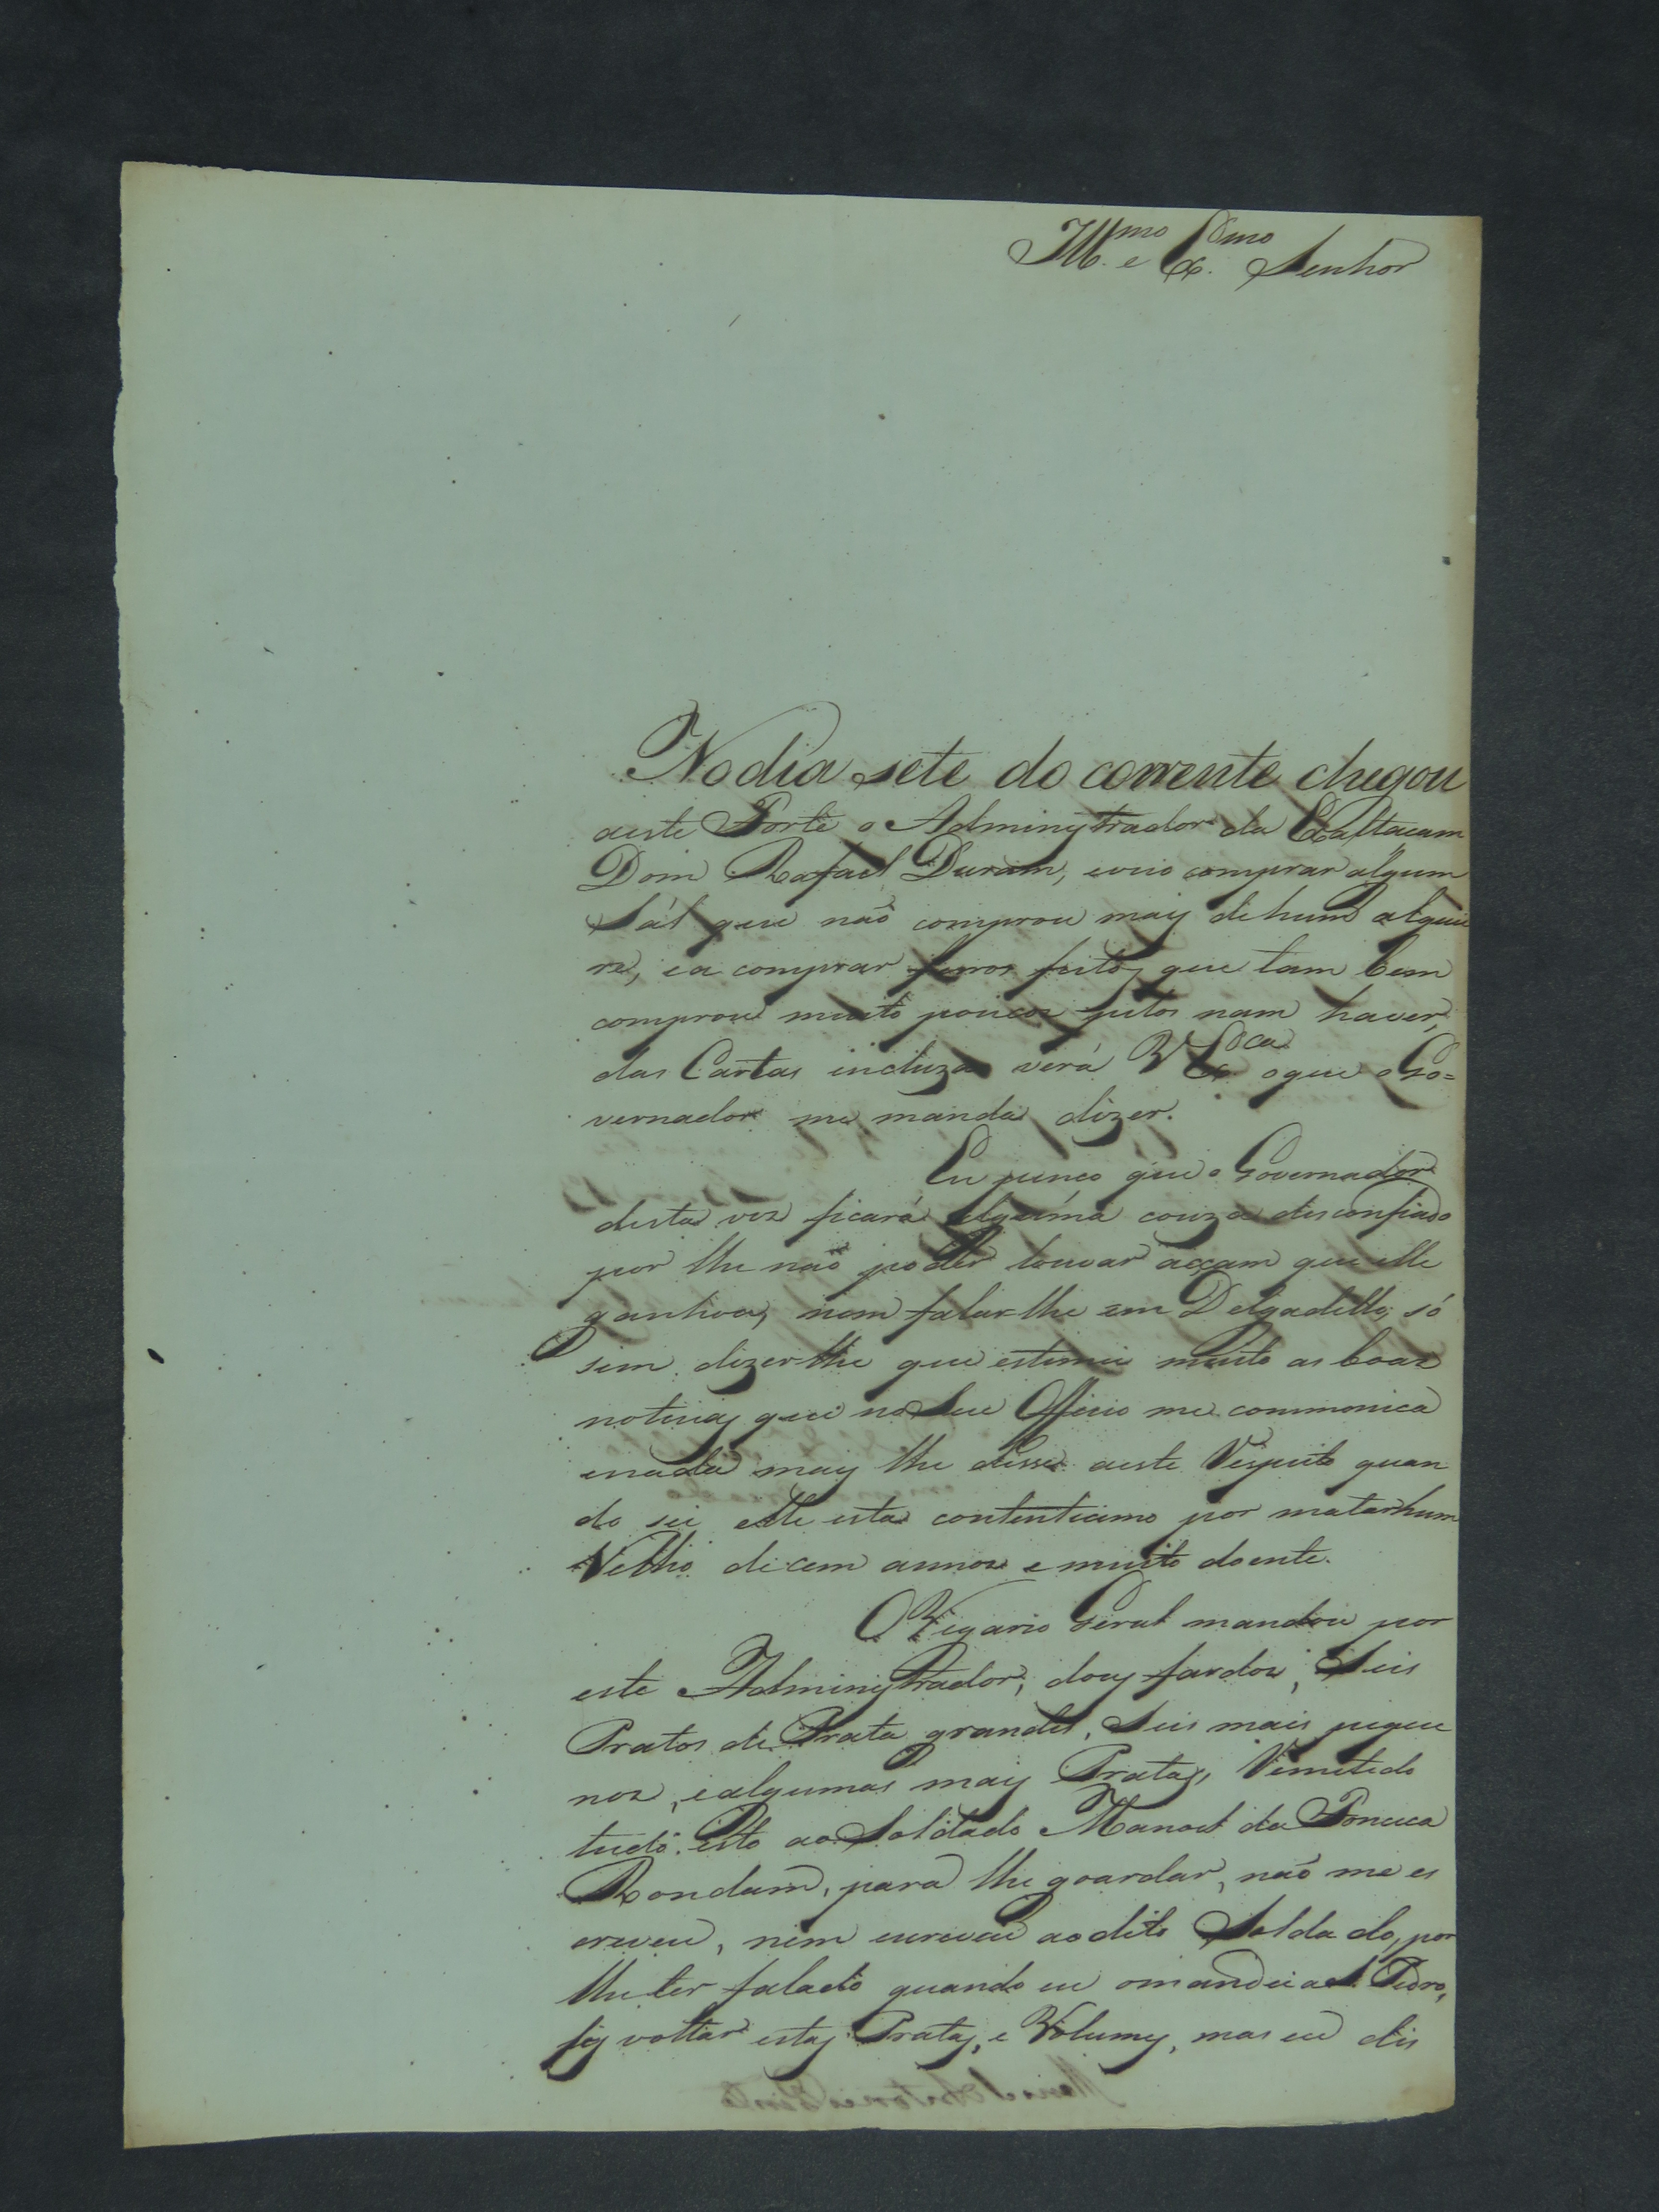 Ill.mo e Ex.mo Senhor
No dia sete do corrente chegou
aeste Forte o Administrador da Exaltacam
Dom Rafael Duram, eveio comprar algum
Sál que não comprou mais de hum alquei
re, ea comprar ferros feitos que tam bem
comprou muito poucos pelos nam haver,
das Cartas incluzas verá V Ex.ca oque o Go=
vernador me manda dizer.
Eu penço que o Governador
desta ves ficará algúma couza desconfiado
por lhe não poder louvar acçam que elle
ganhou, nem falar-lhe em Delgadillo, só
sim dizer-lhe que estimei muito as boas
noticias que no Seu Officio me communica
enada mais lhe disse aeste respeito quan
do sei elle esta contenticimo por matar hum
Velho de cem annos e muito doente.
O Vigario Geral mandou por
este Administrador, dous fardos, Seis
Pratos de Prata grandes, Seis mais peque
nos, ealgumas mais Pratas, Remetido
tudo isto ao Soldado Manoel da Fonceca
Rondam, para lhe goardar, não me es
creveu, nem escreveu ao dito Soldado, por
lhe ter falado quando eu omandei a S. Pedro,
fis voltar estas Pratas, e Volumes, mas eu dis
Manoel Antonio Pinto